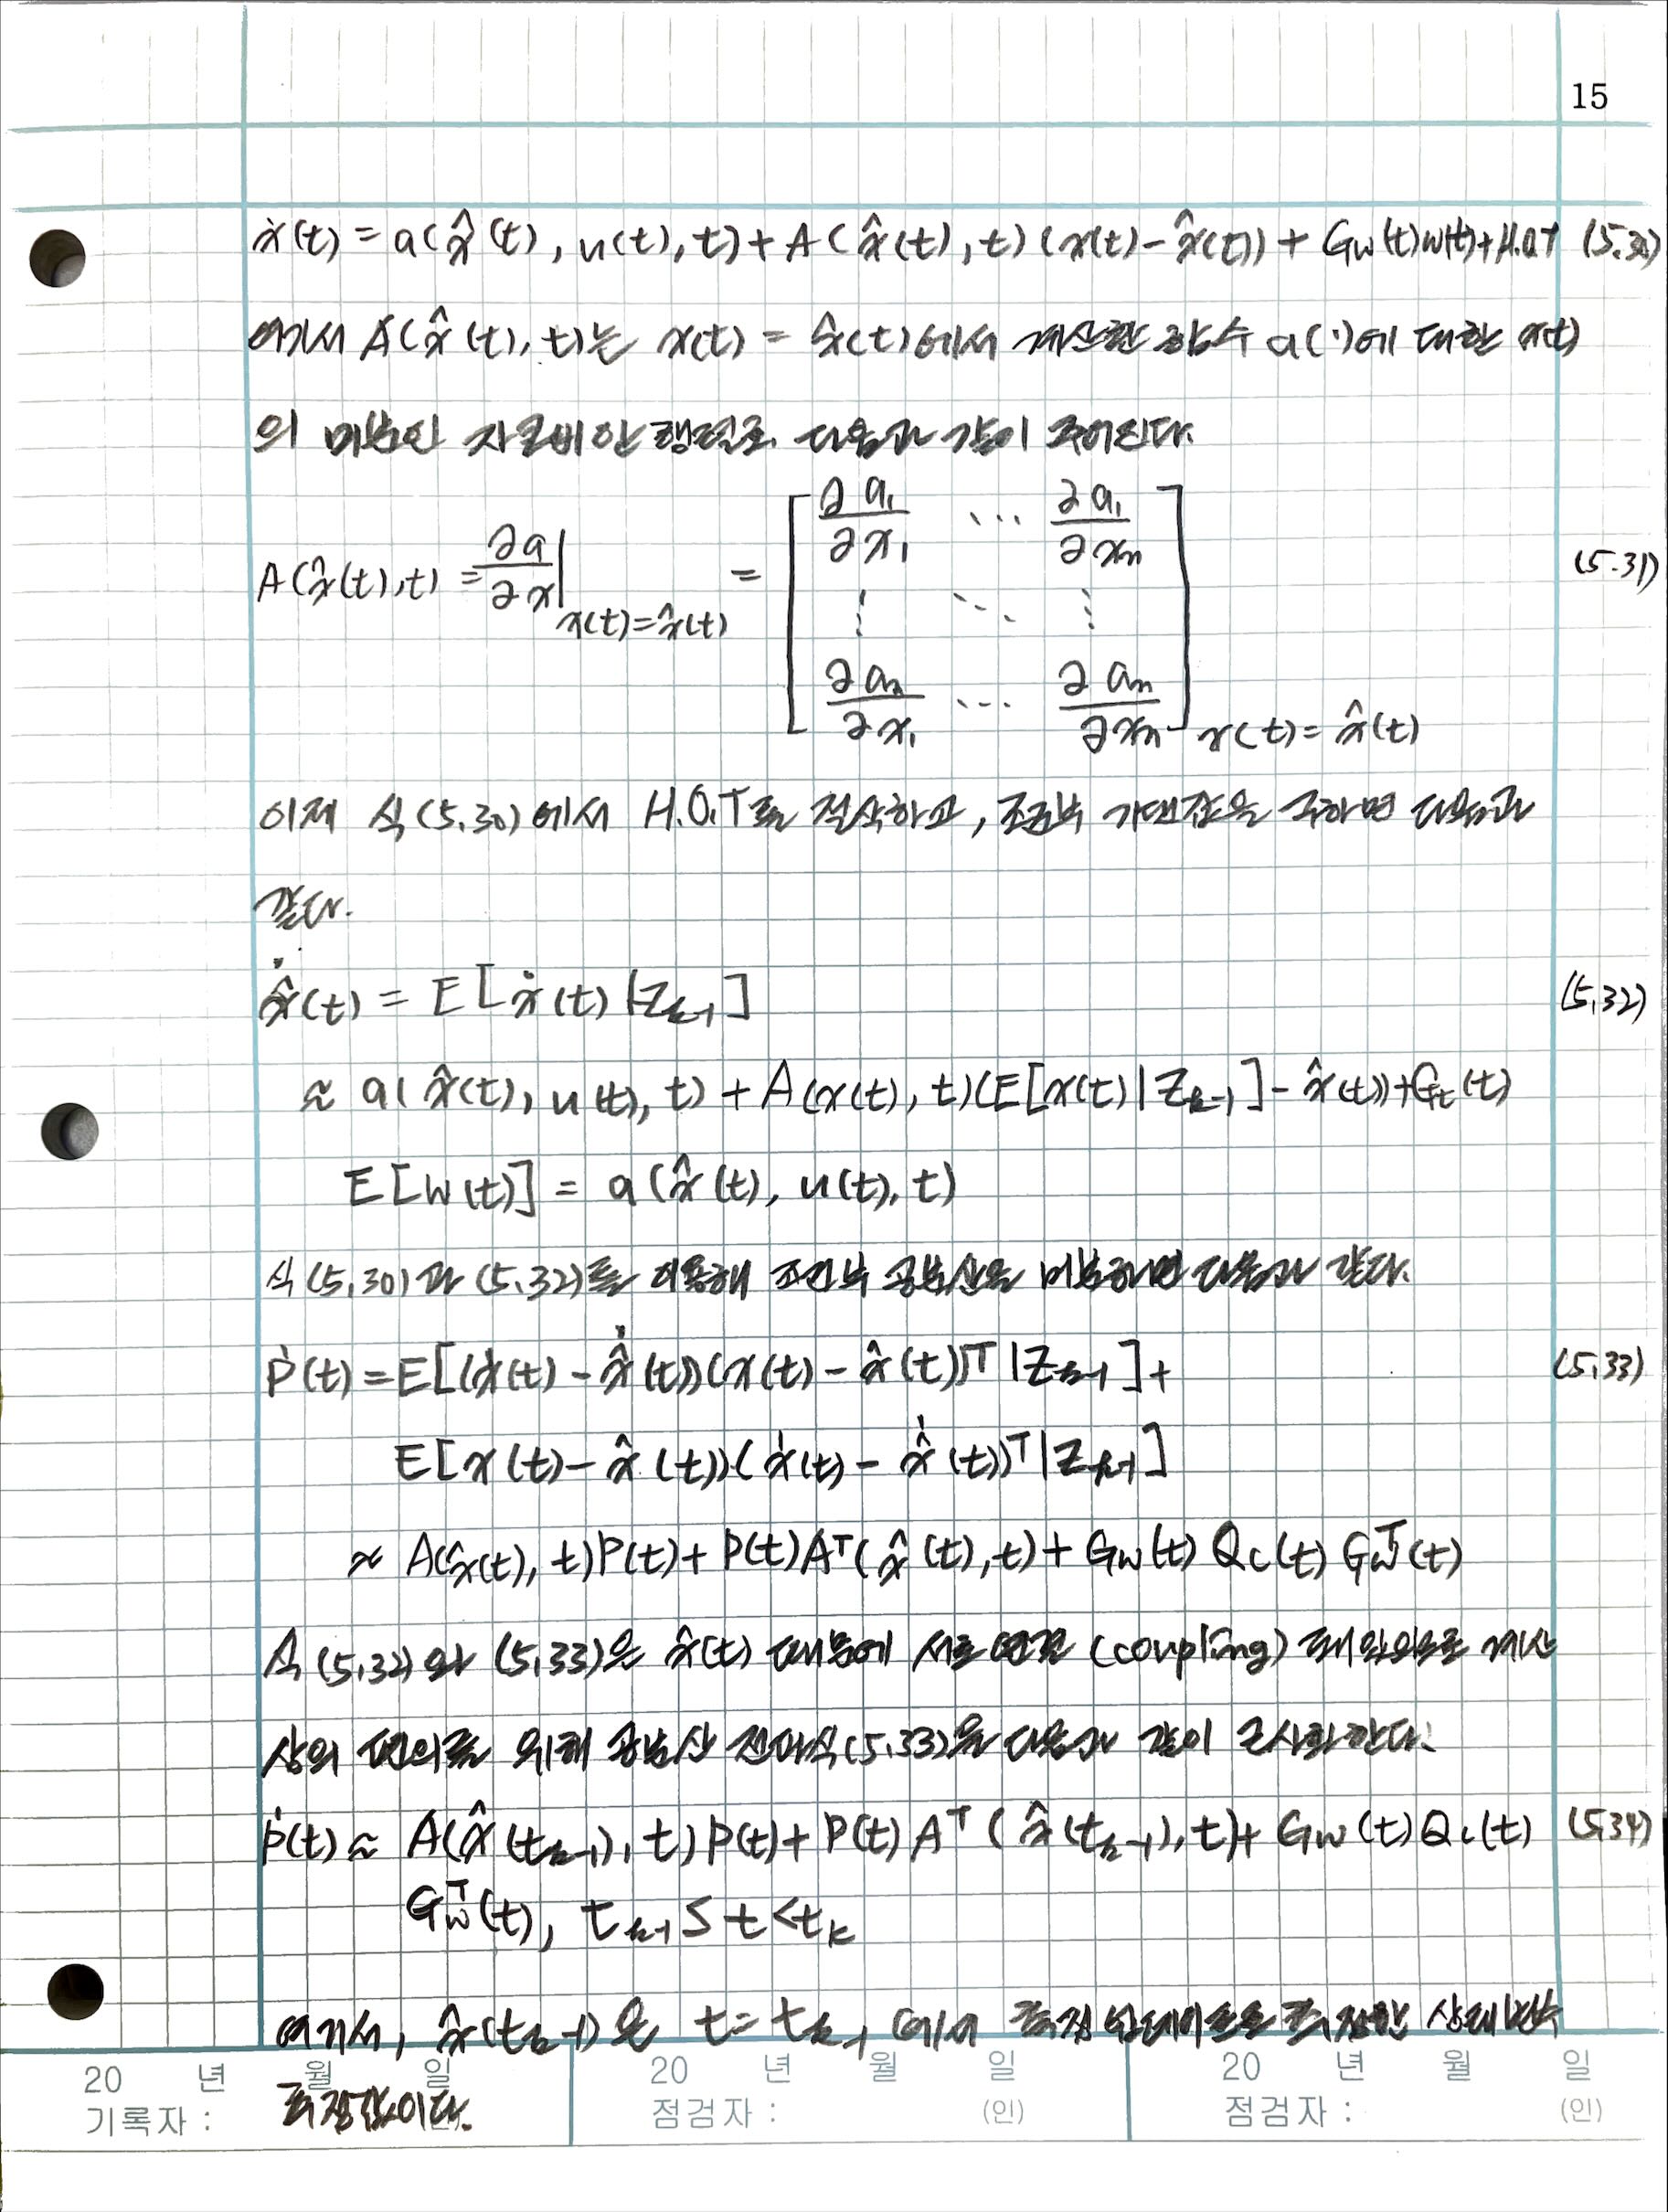 15
ẋ(t) = a(x̂(t), u(t), t) + A(x̂(t), t)(x(t) - x̂(t)) + Gw(t)w(t) + H.O.T (5.30)
여기서 A(x̂(t), t)는 x(t) = x̂(t)에서 계산한 함수 a(·)에 대한 x(t)
의 미분인 자코비안 행렬로, 다음과 같이 주어진다.
A(x̂(t), t) = ∂a/∂x |x(t)=x̂(t) = [∂a₁/∂x₁ ⋯ ∂a₁/∂xn ; ⋮ ⋱ ⋮ ; ∂an/∂x₁ ⋯ ∂an/∂xn] x(t) = x̂(t) (5.31)
이제 식(5.30)에서 H.O.T를 하고, 조건부 기댓값을 구하면 다음과
같다.
x̂̇(t) = E[ẋ(t)|Zk-1] (5.32)
≈ a(x̂(t), u(t), t) + A(x(t), t)(E[x(t)|Zk-1] - x̂(t)) + Gt(t)
E[w(t)] = a(x̂(t), u(t), t)
식(5.30)과 (5.32)를 이용해 조건부 공분산을 미분하면 다음과 같다.
Ṗ(t) = E[(ẋ(t) - x̂̇(t))(x(t) - x̂(t))ᵀ|Zk-1] + (5.33)
E[x(t) - x̂(t))(ẋ(t) - x̂̇(t))ᵀ|Zk-1]
≈ A(x̂(t), t)P(t) + P(t)Aᵀ(x̂(t), t) + Gw(t)Qc(t)Gwᵀ(t)
식(5.32)와 (5.33)은 x̂(t) 때문에 서로 연결(coupling) 돼 있으므로 계산
상의 편의를 위해 공분산 전파식(5.33)을 다음과 같이 근사화한다.
Ṗ(t) ≈ A(x̂(tk-1), t)P(t) + P(t)Aᵀ(x̂(tk-1), t) + Gw(t)Qc(t) (5.34)
Gwᵀ(t), tk-1 ≤ t < tk
여기서, x̂(tk-1)은 t = tk-1에서 측정 업데이트로 추정한 상태변수
추정값이다.
20 년 월 일 20 년 월 일 20 년 월 일
기록자 : 점검자 : (인) 점검자 : (인)